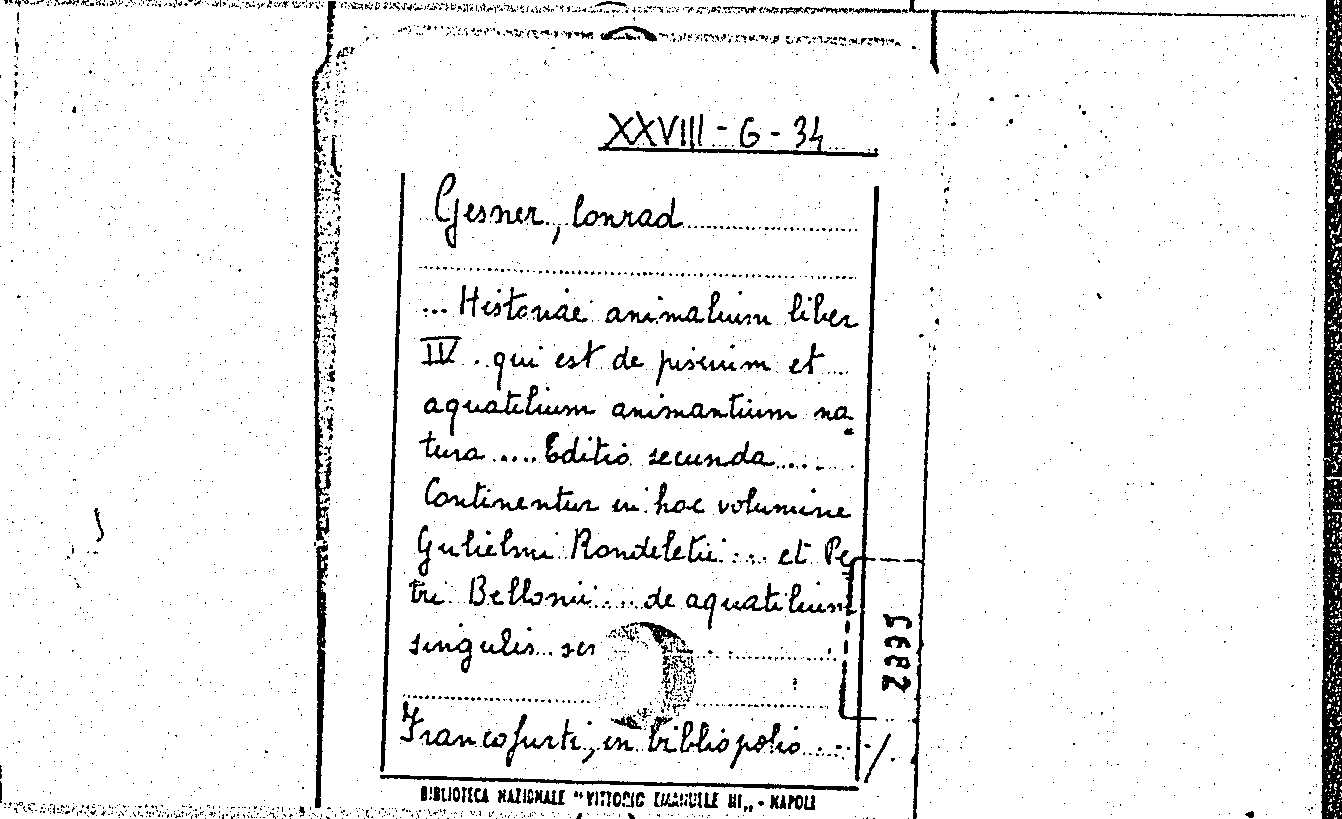 XXVIII - G - 34
Gesner, Conrad
... Historiae animalium liber
IV. qui est de piscium et
aquatilium animantium na-
tura .... Editio secunda ....
Continentur in hoc volumine
Gulielmi Rondeletii .... et Pe
tri Bellonii .... de aquatilium
singulis scr
Francofurti, in bibliopolio .... ./.
BIBLIOTECA NAZIONALE "VITTORIO EMANUELE III„ - NAPOLI